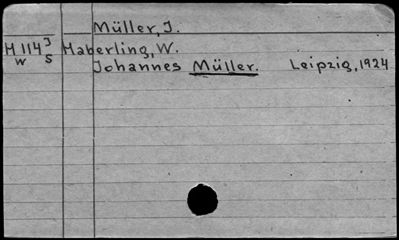 Müller, J.
M 114 J Haberling, W.
W S
Johannes Müller. Leipzig, 1924